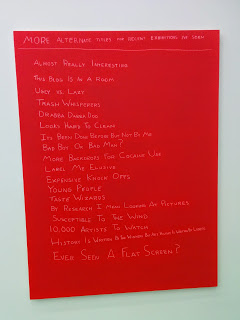 MORE ALTERNATE TITLES FOR RECENT EXHIBITIONS I'VE SEEN
ALMOST REALLY INTERESTING
THIS BLOG IS IN A ROOM
UGLY VS LAZY
TRASH WHISPERERS
DRABBA DABBA DOO
LOOKS HARD TO CLEAN
IT'S BEEN DONE BEFORE BUT NOT BY ME
BAD BOY OR BAD MAN?
MORE BACKDROPS FOR COCAINE USE
LABEL ME ELUSIVE
EXPENSIVE KNOCK OFFS
YOUNG PEOPLE
TASTE WIZARDS
BY RESEARCH I MEAN LOOKING AT PICTURES
SUSCEPTIBLE TO THE WIND
10,000 ARTISTS TO WATCH
HISTORY IS WRITTEN BY THE WINNERS BUT ART HISTORY IS WRITTEN BY
EVER SEEN A FLAT SCREEN?